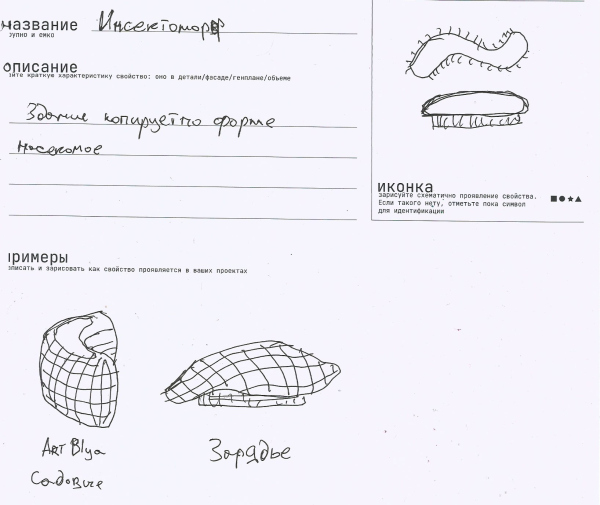 название
Инсектоморф
крупно и емко
описание
дайте краткую характеристику свойство: оно в детали/фасаде/генплане/объеме
Здание копирует по форме
насекомое
иконка
зарисуйте схематично проявление свойства.
Если такого нету, отметьте пока символ
для идентификации
примеры
описать и зарисовать как свойство проявляется в ваших проектах
Art Blya
Зарядье